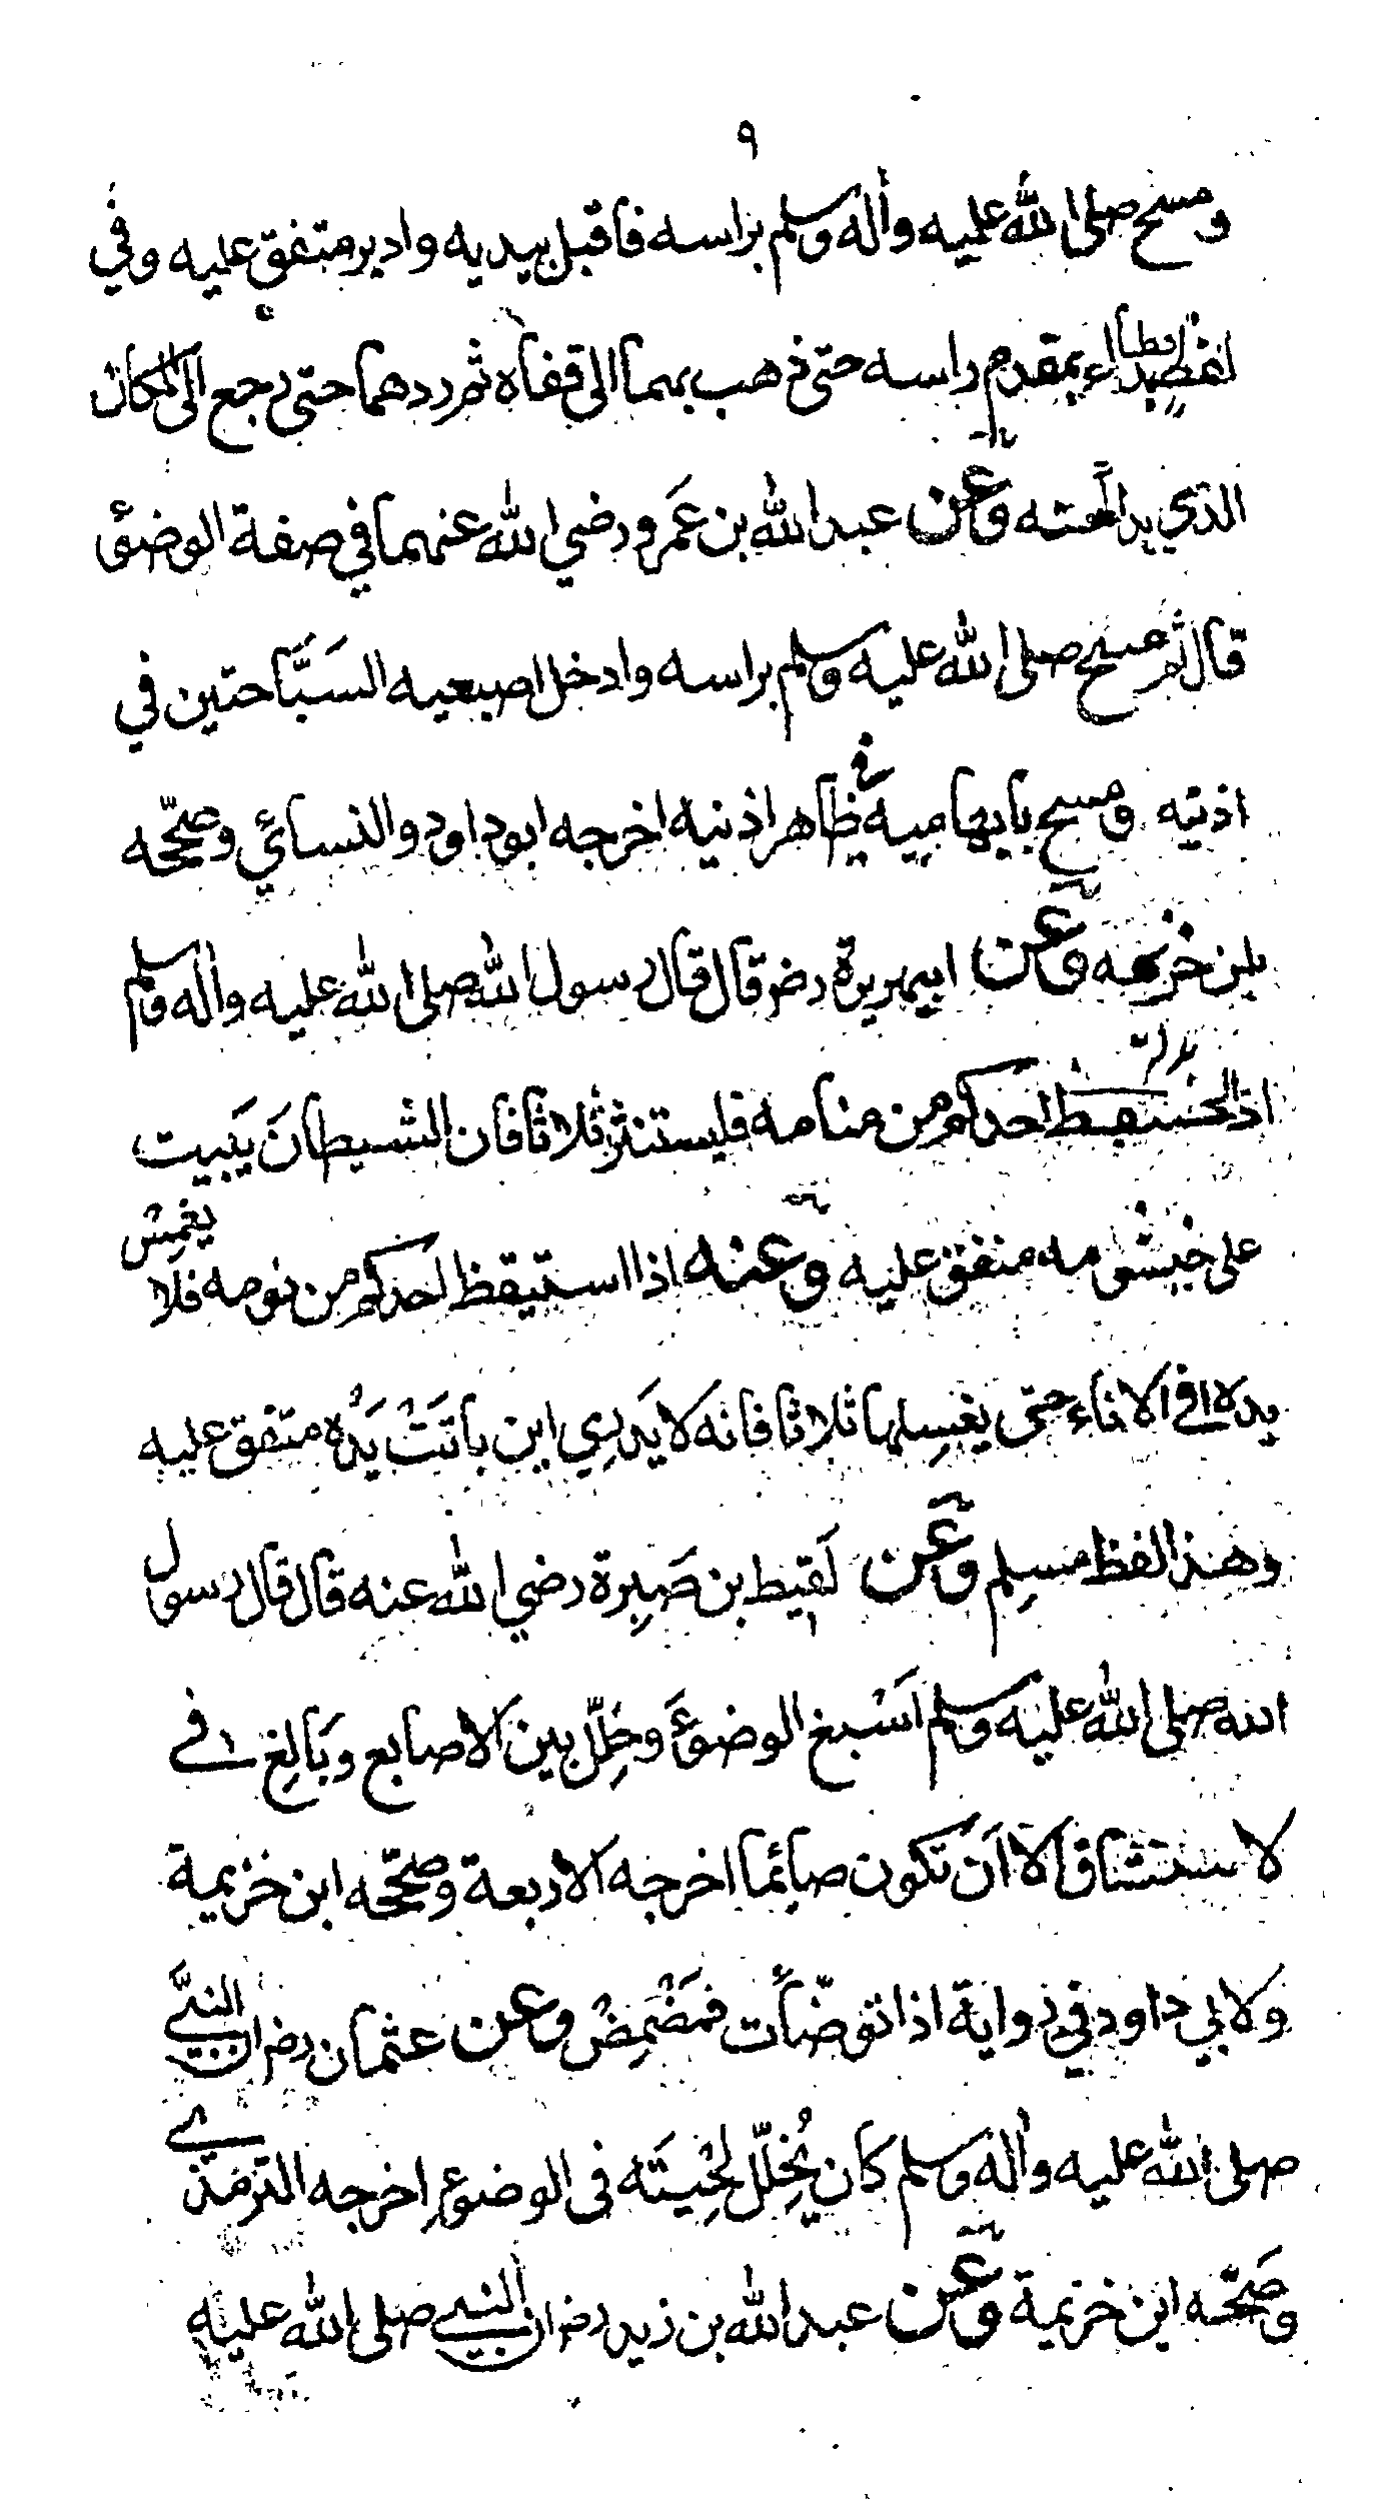 ٩
ومسح صلى الله عليه وأله وسلم براسه فاقبل بيديه وادبر متفق عليه وفي
لفظ بداء بمقدم راسه حتى ذهب بهما الى قفاه ثم ردهما حتى رجع الى المكان
الذي بدا منه وعن عبد الله بن عَمرو رضي الله عنهما في صفة الوضؤ
قال ثم مسح صلى الله عليه وسلم براسه وادخل اصبعيه السَبَّاحتين في
اذنيه ومسح بابهاميه في ظاهر اذنيه اخرجه ابوداود والنسائي وصحّحه
بن خزيمه وعن ابيهريرة رض قال قال رسول الله صلى الله عليه وأله وسلم
اذا استيقظ احدكم من منامه فليستنثر ثلاثا فان الشيطانَ يَبيت
على خيشومه متفق عليه وعنه اذا استيقظ احدكم من نومه فلا يغمِسْ
يده في الاناء حتى يغسِلها ثلاثا فانه لا يَدرِي اين باتَتْ يَدُه متفق عليه
وهذا لفظ مسلم وعن لَقيط بن صَبِرة رضي الله عنه قال قال رسول
الله صلى الله عليه وسلم اَسْبغ الوضؤَ وخَلِّل بين الاصابع وبَالِغ في
لاستنشاق الا اَن تكون صائما اخرجه الاربعة وصحّحه ابن خزيمة
ولابي داود في رواية اذا توضّأت فمَضْمِضْ وعن عثمان رض ان النبيَّ
صلى الله عليه وأله وسلم كان يُخلّل لِحْيتَه فى الوضوءِ اخرجه الترمذي
وصَحّحه ابن خزيمة وعن عبد الله بن زيد رض ان النبي صلى الله عليه